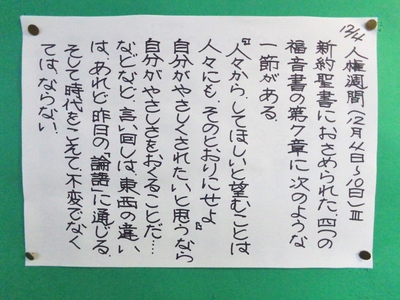 12/4 人権週間(12月4日~10日)Ⅲ
新約聖書におさめられた、四つの
福音書の第7章に次のような
一節がある。
『人々から、してほしいと望むことは
人々にも、そのとおりにせよ』
自分がやさしくされたいと思うなら
自分がやさしさをおくることだ…
などなど、言い回しは、東西の違い
は、あれど昨日の「論語」に通じる。
そして時代をこえて、不変でなく
ては、ならない。